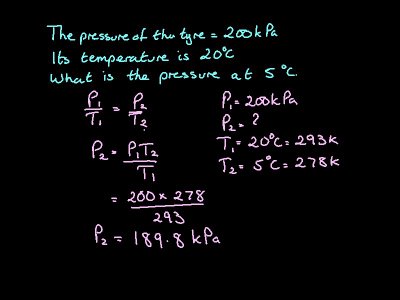 The pressure of the tyre = 200kPa
Its temperature is 20°C
What is the pressure at 5°C.
P₁/T₁ = P₂/T₂
P₁ = 200kPa
P₂ = ?
P₂ = P₁T₂/T₁
T₁ = 20°C = 293k
T₂ = 5°C = 278k
= 200 × 278/293
P₂ = 189.8 kPa